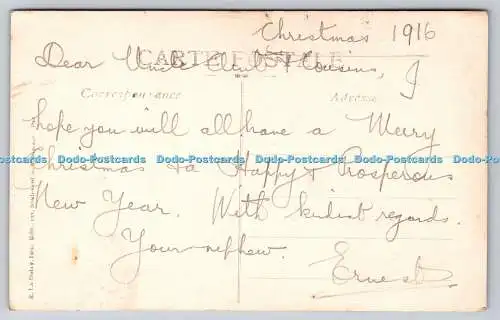 Christmas 1916
CARTE POSTALE
Dear Uncle Aunt & Cousins, I
Correspondance
Adresse
hope you will all have a Merry
Dodo-Postcards Dodo-Postcards Dodo-Postcards Dodo-Postcards Dodo-Postcards Dodo-Postcards
Christmas & a Happy & Prosperous
New Year. With kindest regards.
Your nephew.
Ernest